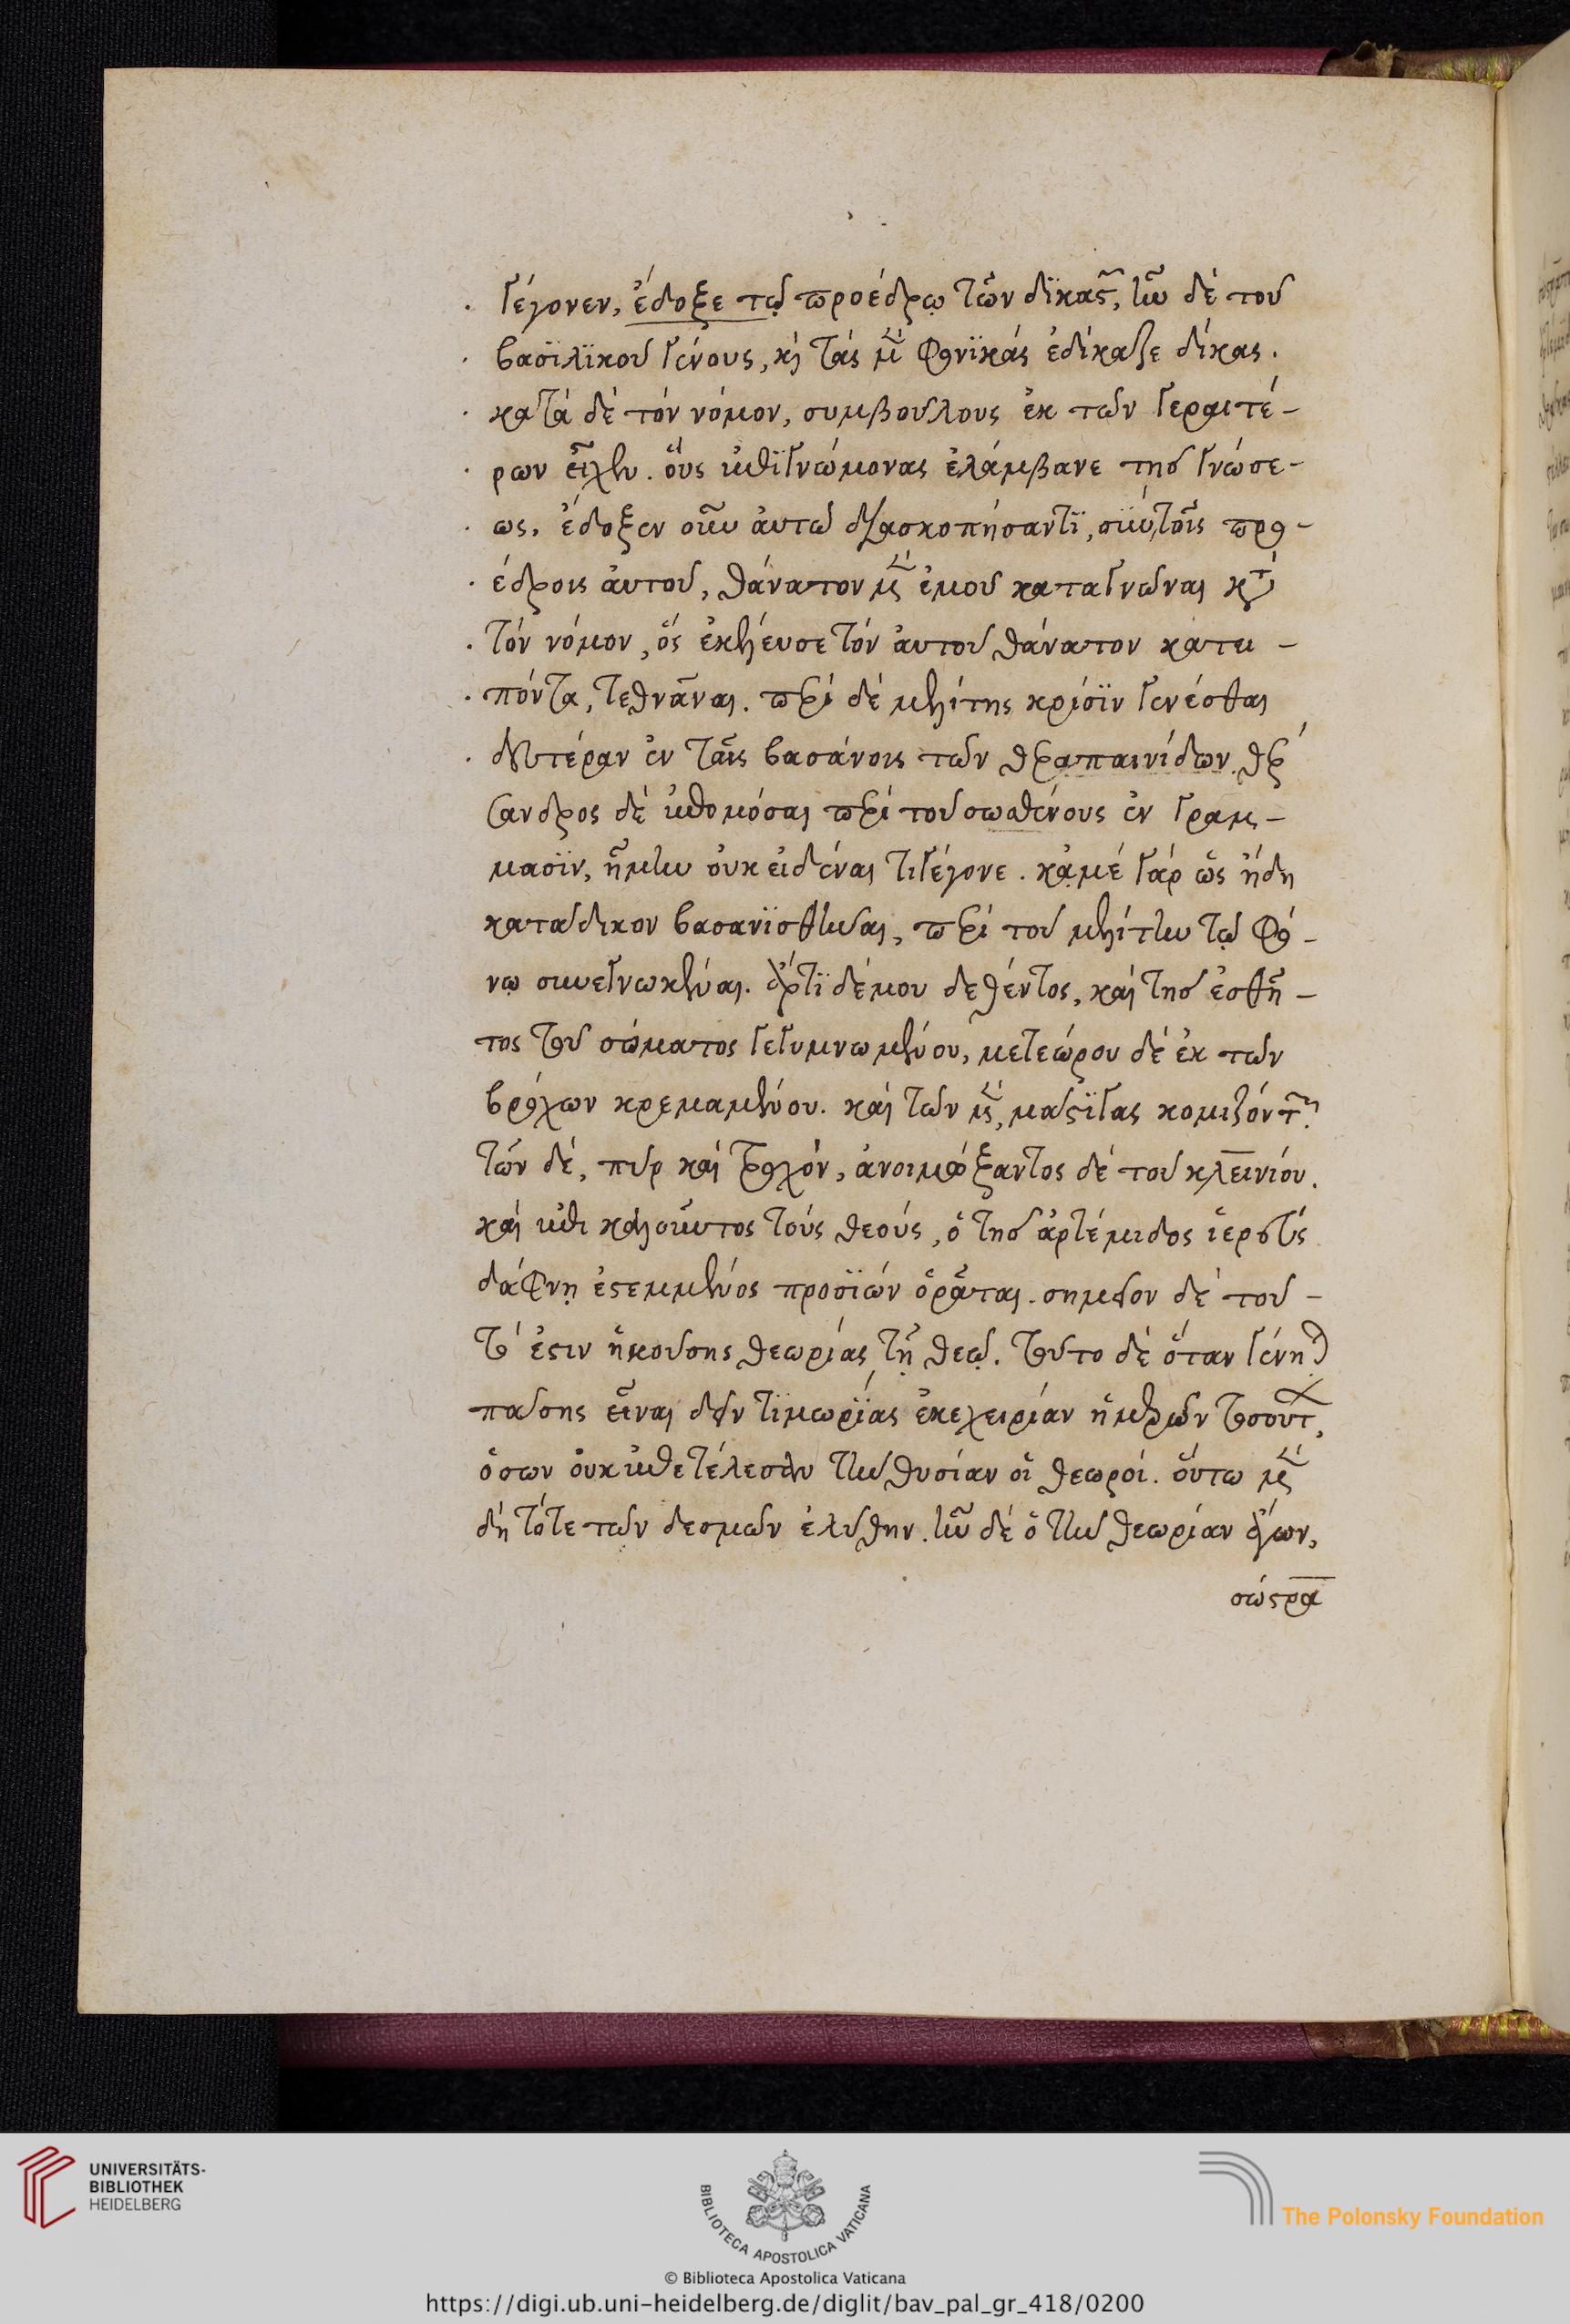 γέγονεν, ἔδοξε τῷ προέδρῳ τῶν δικαστ, ἦν δὲ τοῦ
βασιλικοῦ γένους, κὶ τὰς μὲν φονικὰς ἐδίκαζε δίκας.
κατὰ δὲ τὸν νόμον, συμβούλους ἐκ τῶν γεραιτέ-
ρων εἶχεν. οὓς ἐπιγνώμονας ἐλάμβανε τῆς γνώσε-
ως. ἔδοξεν οὖν αὐτῷ διασκοπήσαντι, σὺν τοῖς προ-
έδροις αὐτοῦ, θάνατον μὲν ἐμοῦ καταγνῶναι κτ
τὸν νόμον, ὃς ἐκέλευσε τὸν αὐτοῦ θάνατον κατει-
πόντα, τεθνάναι. περὶ δὲ μελίτης κρίσιν γενέσθαι
δευτέραν ἐν ταῖς βασάνοις τῶν θεραπαινίδων. θέρ
σανδρος δὲ ἐπομόσαι περὶ τοῦ σωσθένους ἐν γραμ-
μασιν, ἦ μὴν οὐκ εἰδέναι τι γέγονε. κἀμὲ γὰρ ὡς ἤδη
κατάδικον βασανισθῆναι, περὶ τοῦ μελίτην τῷ φό-
νῳ συνεγνωκέναι. ἄρτι δέ μου δεθέντος, καὶ τῆς ἐσθῆ-
τος τοῦ σώματος γεγυμνωμένου, μετεώρου δὲ ἐκ τῶν
βρόχων κρεμαμένου. καὶ τῶν μὲν, μάστιγας κομιζόντων.
τῶν δὲ, πῦρ καὶ τροχὸν, ἀνοιμώξαντος δὲ τοῦ κλεινίου.
καὶ ἐπικαλοῦντος τοὺς θεοὺς, ὁ τῆς ἀρτέμιδος ἱερεὺς
δάφνῃ ἐστεμμένος προσιὼν ὁρᾶται. σημεῖον δὲ τοῦ-
τό ἐστιν ἡκούσης θεωρίας τῇ θεῷ. τοῦτο δὲ ὅταν γένηται
πάσης εἶναι δεῖν τιμωρίας ἐκεχειρίαν ἡμερῶν τοσούτ,
ὅσων οὐκ ἐπετέλεσαν τὴν θυσίαν οἱ θεωροί. οὕτω μὲν
δὴ τότε τῶν δεσμῶν ἐλύθην. ἦν δὲ ὁ τὴν θεωρίαν ἄγων,
σώστρα
UNIVERSITÄTS-
BIBLIOTHEK
HEIDELBERG
BIBLIOTECA APOSTOLICA VATICANA
The Polonsky Foundation
© Biblioteca Apostolica Vaticana
https://digi.ub.uni-heidelberg.de/diglit/bav_pal_gr_418/0200